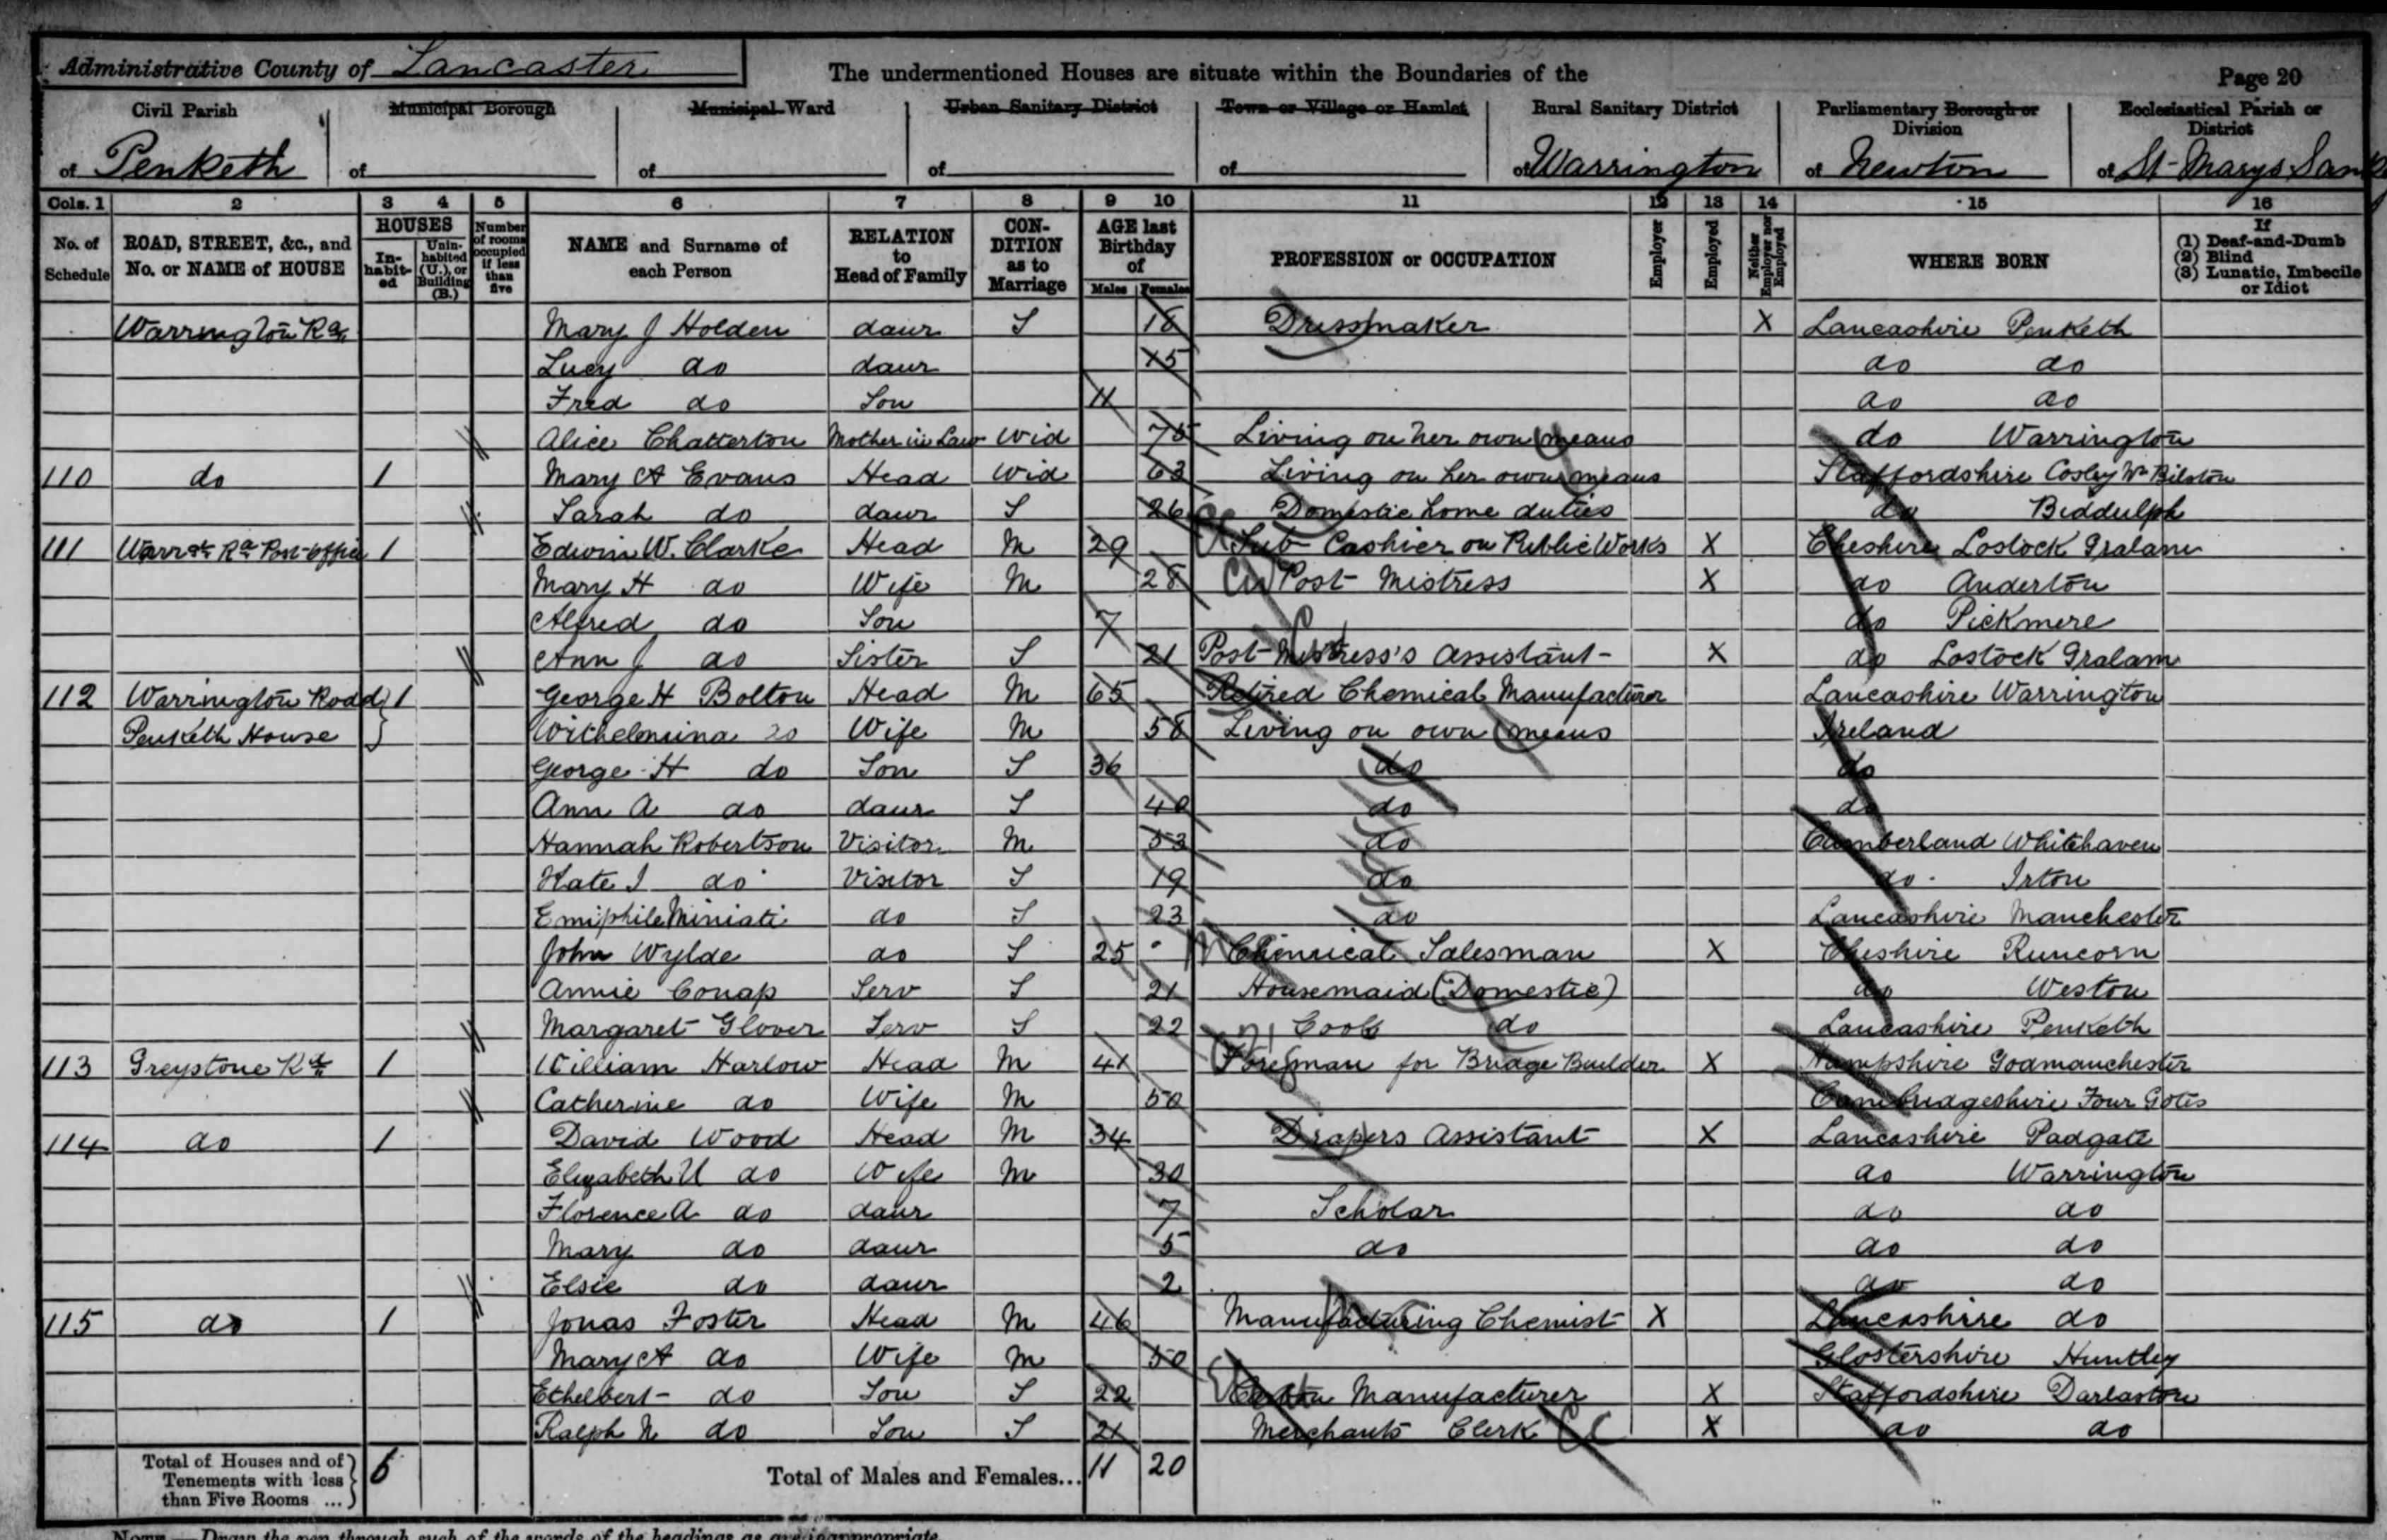 Administrative County of Lancaster The undermentioned Houses are situate within the Boundaries of the Page 20
Civil Parish Municipal Borough Municipal Ward Urban Sanitary District Town or Village or Hamlet Rural Sanitary District Parliamentary Borough or Division Ecclesiastical Parish or District
of Penketh of of of of of Warrington of Newton of St Marys
Cols. 1 2 3 4 5 6 7 8 9 10 11 12 13 14 15 16
No. of Schedule ROAD, STREET, &c., and No. or NAME of HOUSE HOUSES In-habit-ed Unin-habited (U.), or Building (B.) Number of rooms occupied if less than five NAME and Surname of each Person RELATION to Head of Family CON-DITION as to Marriage AGE last Birthday of Males Females PROFESSION or OCCUPATION Employer Employed Neither Employer nor Employed WHERE BORN If (1) Deaf-and-Dumb (2) Blind (3) Lunatic, Imbecile or Idiot
Warrington Rd Mary J Holden daur S 18 Dressmaker X Lancashire Penketh
Lucy do daur 15 do do
Fred do Son 11 do do
Alice Chatterton Mother in Law Wid 75 Living on her own means do Warrington
110 do 1 Mary A Evans Head Wid 63 Living on her own means Staffordshire Cosley Nr Bilston
Sarah do daur S 26 Domestic home duties do Biddulph
111 Warrtn Rd Post-office 1 Edwin W. Clarke Head M 29 Sub Cashier on Public Works X Cheshire Lostock Gralam
Mary H do Wife M 28 Post Mistress X do Anderton
Alfred do Son 7 do Pickmere
Ann J do Sister S 21 Post-Mistress's Assistant- X do Lostock Gralam
112 Warrington Road 1 George H Bolton Head M 65 Retired Chemical Manufacturer Lancashire Warrington
Penketh House Wilhelmina do Wife M 58 Living on own means Ireland
George H do Son S 36 do do
Ann A do daur S 40 do do
Hannah Robertson Visitor M 53 do Cumberland Whitehaven
Kate I do Visitor S 19 do do Irton
Emiphile Miniati do S 23 do Lancashire Manchester
John Wylde do S 25 Chemical Salesman X Cheshire Runcorn
Annie Conap Serv S 21 Housemaid (Domestic) do Weston
Margaret Glover Serv S 22 Cook do Lancashire Penketh
113 Greystone Rd 1 William Harlow Head M 41 Foreman for Bridge Builder X Hampshire Godmanchester
Catherine do Wife M 50 Cambridgeshire Four Gotes
114 do 1 David Wood Head M 34 Drapers Assistant X Lancashire Padgate
Elizabeth U do Wife M 30 do Warrington
Florence A do daur 7 Scholar do do
Mary do daur 5 do do do
Elsie do daur 2 do do
115 do 1 Jonas Foster Head M 46 Manufacturing Chemist X Lancashire do
Mary A do Wife M 50 Glostershire Huntley
Ethelbert do Son S 22 Manufacturer X Staffordshire Darlaston
Ralph N do Son S 21 Merchants Clerk X do do
Total of Houses and of Tenements with less than Five Rooms ... 6 Total of Males and Females... 11 20